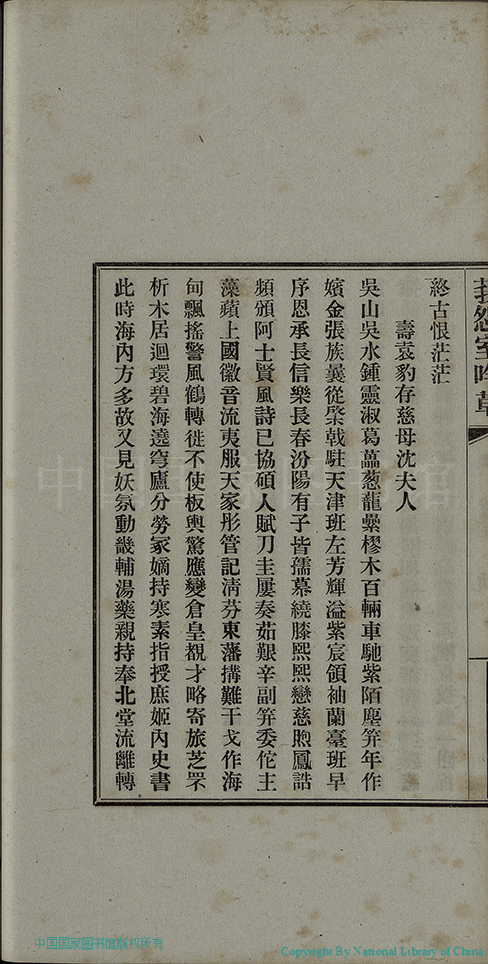 吟草
終古恨茫茫
壽袁豹存慈母沈夫人
吳山吳水鍾靈淑葛藟葱蘢縈樛木百輛車馳紫陌塵笄年作
嬪金張族曩從棨戟駐天津班左芳輝溢紫宸領袖蘭臺班早
序恩承長信樂長春汾陽有子皆孺慕繞膝熙熙戀慈煦鳳誥
頻頒阿士賢風詩已協碩人賦刀圭屢奏茹艱辛副笄委佗主
藻蘋上國徽音流夷服天家彤管記淸芬東藩搆難干戈作海
甸飄搖警風鶴轉徙不使板輿驚應變倉皇覩才略寄旅芝罘
析木居迴環碧海遶穹廬分勞冢嫡持寒素指授庶姬內史書
此時海內方多故又見妖氛動畿輔湯藥親持奉北堂流離轉
中国国家图书馆版权所有
Copyright By National Library of China